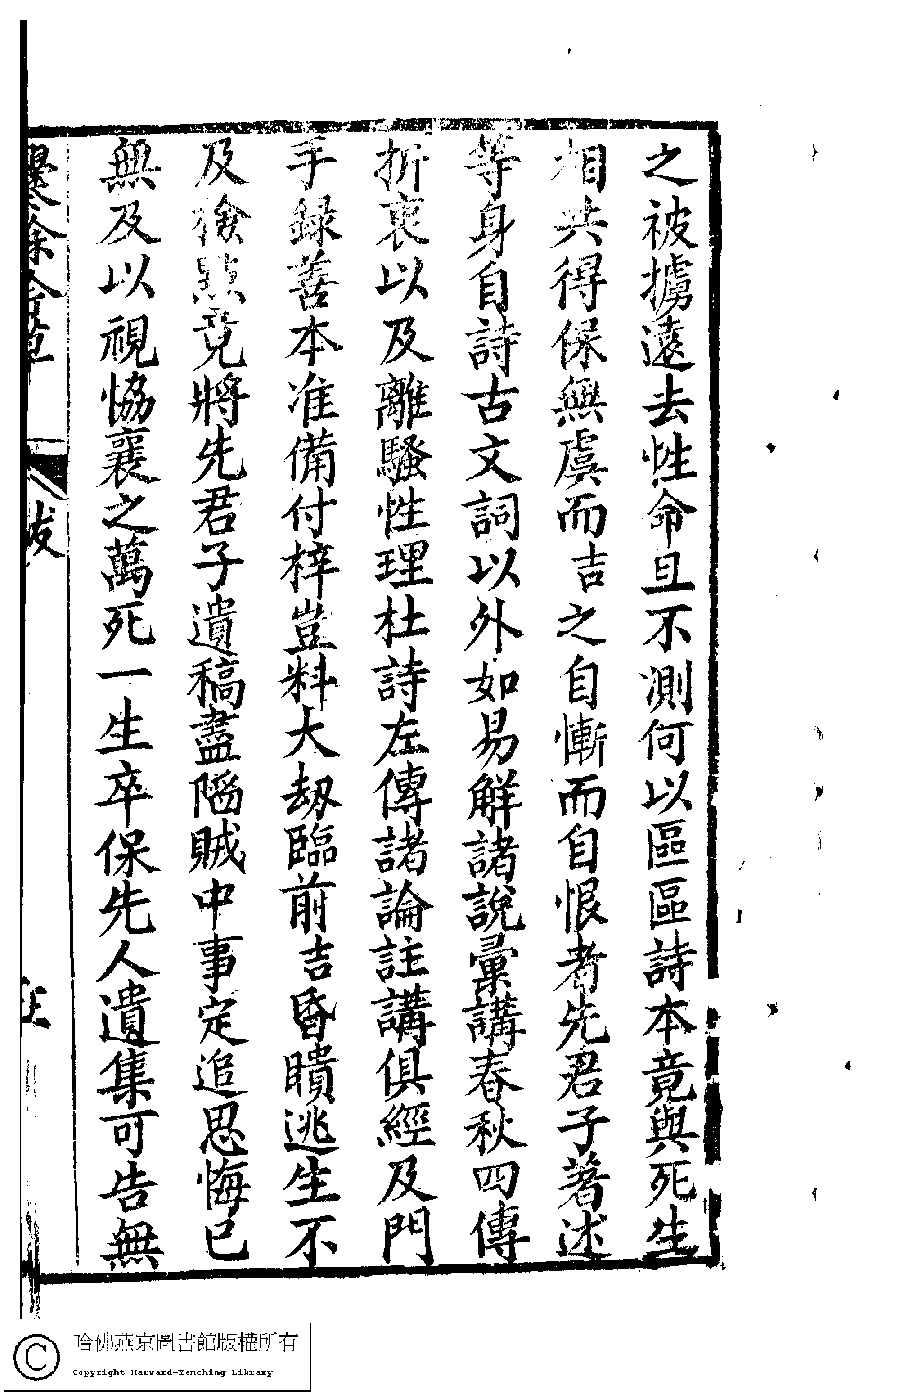 之被擄遠去性命且不測何以區區詩本竟與死生
相共得保無虞而吉之自慚而自恨者先君子著述
等身自詩古文詞以外如易解諸說彙講春秋四傳
折衷以及離騷性理杜詩左傳諸論註講俱經及門
手録善本准備付梓豈料大刼臨前吉昏瞶逃生不
及檢點竟將先君子遺稿盡陷賊中事定追思悔已
無及以視恊襄之萬死一生卒保先人遺集可告無
餘舍草
跋
哈佛燕京圖書館版權所有
Copyright Harvard-Yenching Library